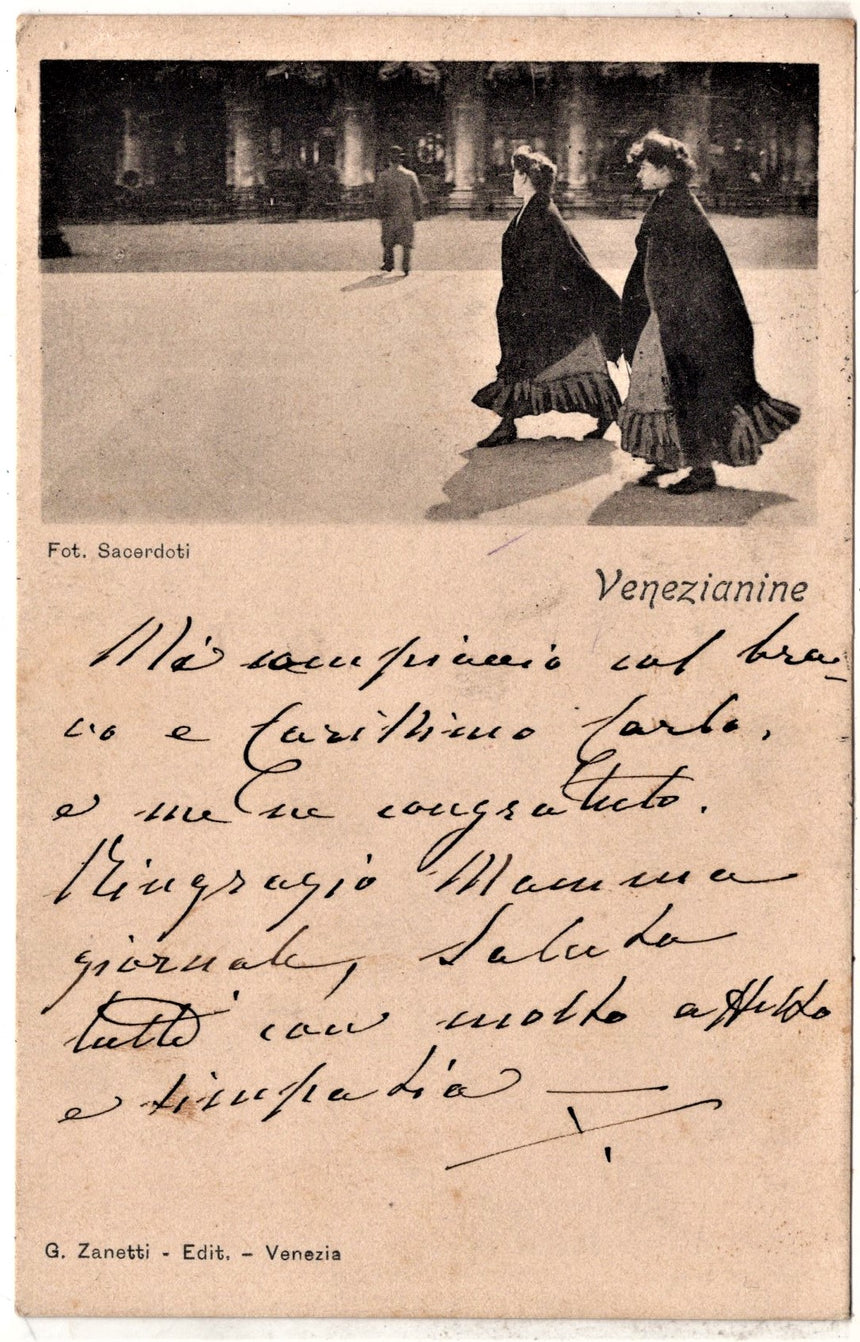 Fot. Sacerdoti
Venezianine
Mi compiaccio col bra-
vo e Carissimo Carlo,
e me ne congratulo.
Ringrazio Mamma
giornale, Saluto
tutti con molto affetto
e simpatia —
G. Zanetti - Edit. - Venezia